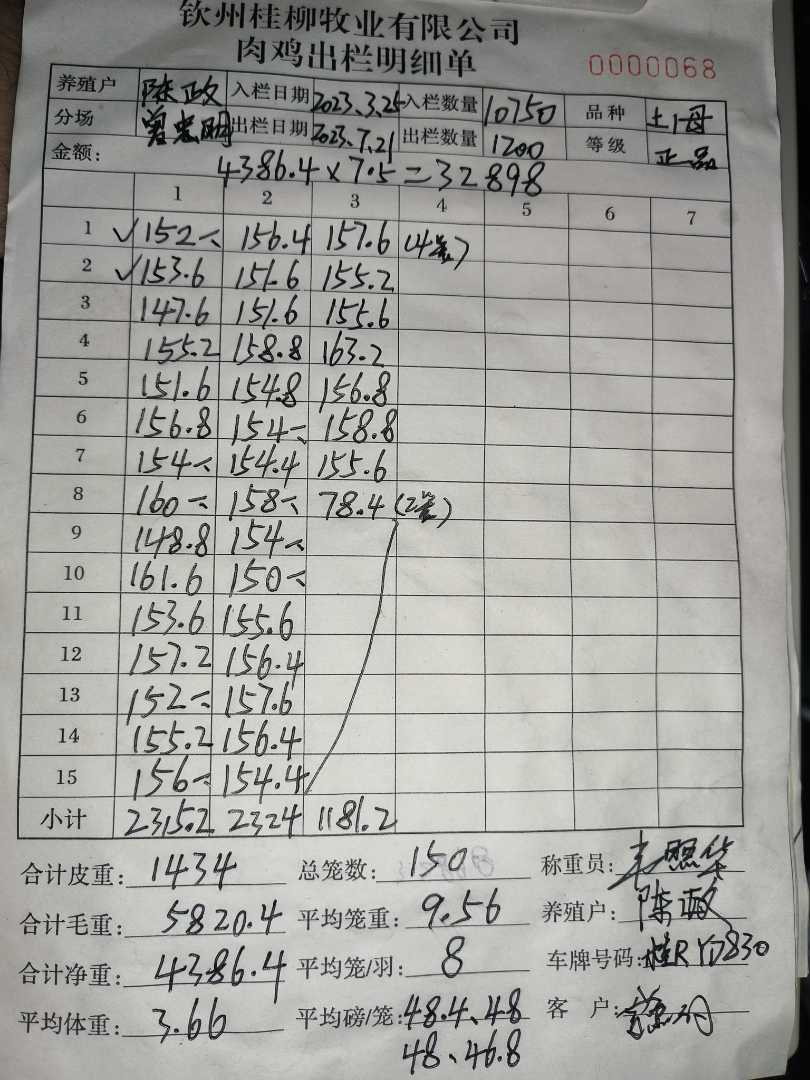 钦州桂柳牧业有限公司
肉鸡出栏明细单 0000068
养殖户 陈政 入栏日期 2023.3.25 入栏数量 10750 品种 土1母
分场 出栏日期 2023.7.21 出栏数量 1200 等级 正品
金额: 4386.4×7.5=32898
1 2 3 4 5 6 7
1 ✓152 156.4 157.6 (4笼)
2 ✓153.6 151.6 155.2
3 147.6 151.6 155.6
4 155.2 158.8 163.2
5 151.6 154.8 156.8
6 156.8 154 158.8
7 154 154.4 155.6
8 160 158 78.4 (2笼)
9 148.8 154
10 161.6 150
11 153.6 155.6
12 157.2 156.4
13 152 157.6
14 155.2 156.4
15 156 154.4
小计 2315.2 2324 1181.2
合计皮重: 1434 总笼数: 150 称重员:
合计毛重: 5820.4 平均笼重: 9.56 养殖户: 陈政
合计净重: 4386.4 平均笼/羽: 8 车牌号码: 桂R YD830
平均体重: 3.66 平均磅/笼: 48.4、48 客 户:
48、46.8